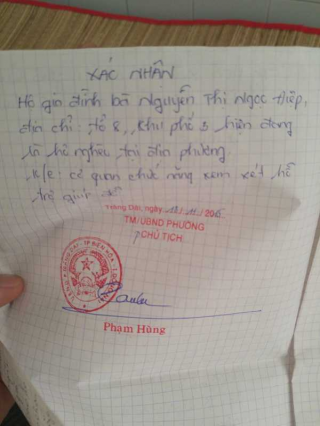 XÁC NHẬN
Hộ gia đình bà Nguyễn Thị Ngọc Hiệp,
địa chỉ: tổ 8, khu phố 3 hiện đang
là hộ nghèo tại địa phương.
K/c: cơ quan chức năng xem xét hỗ
trợ giúp đỡ
ngày
TM/UBND PHƯỜNG
CHỦ TỊCH
Phạm Hùng